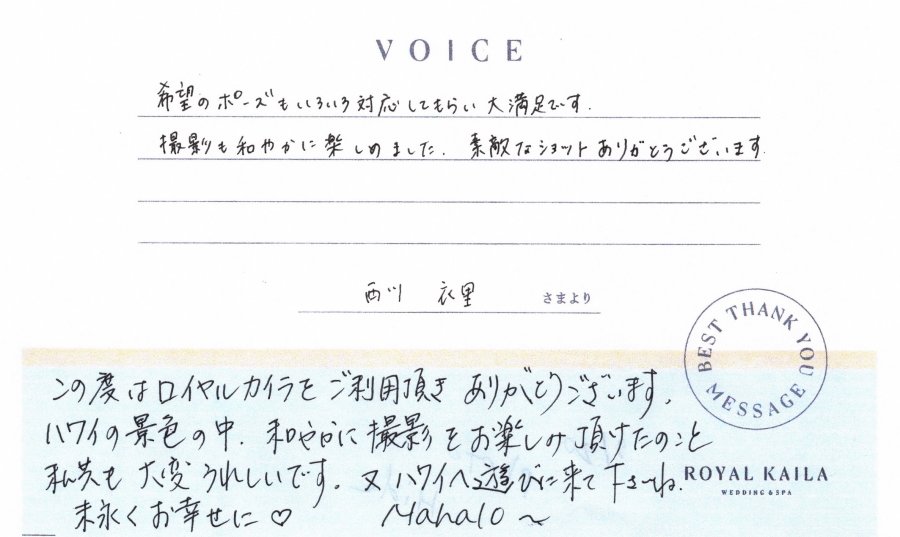 VOICE
希望のポーズもいろいろ対応してもらい大満足です.
撮影も和やかに楽しめました. 素敵なショットありがとうございます.
西川 衣里 さまより
BEST THANK YOU MESSAGE
この度はロイヤルカイラをご利用頂きありがとうございます.
ハワイの景色の中. 和やかに撮影をお楽しみ頂けたのこと
私共も大変うれしいです。又ハワイへ遊びに来て下さいね.
ROYAL KAILA
WEDDING & SPA
末永くお幸せに♡ Mahalo~